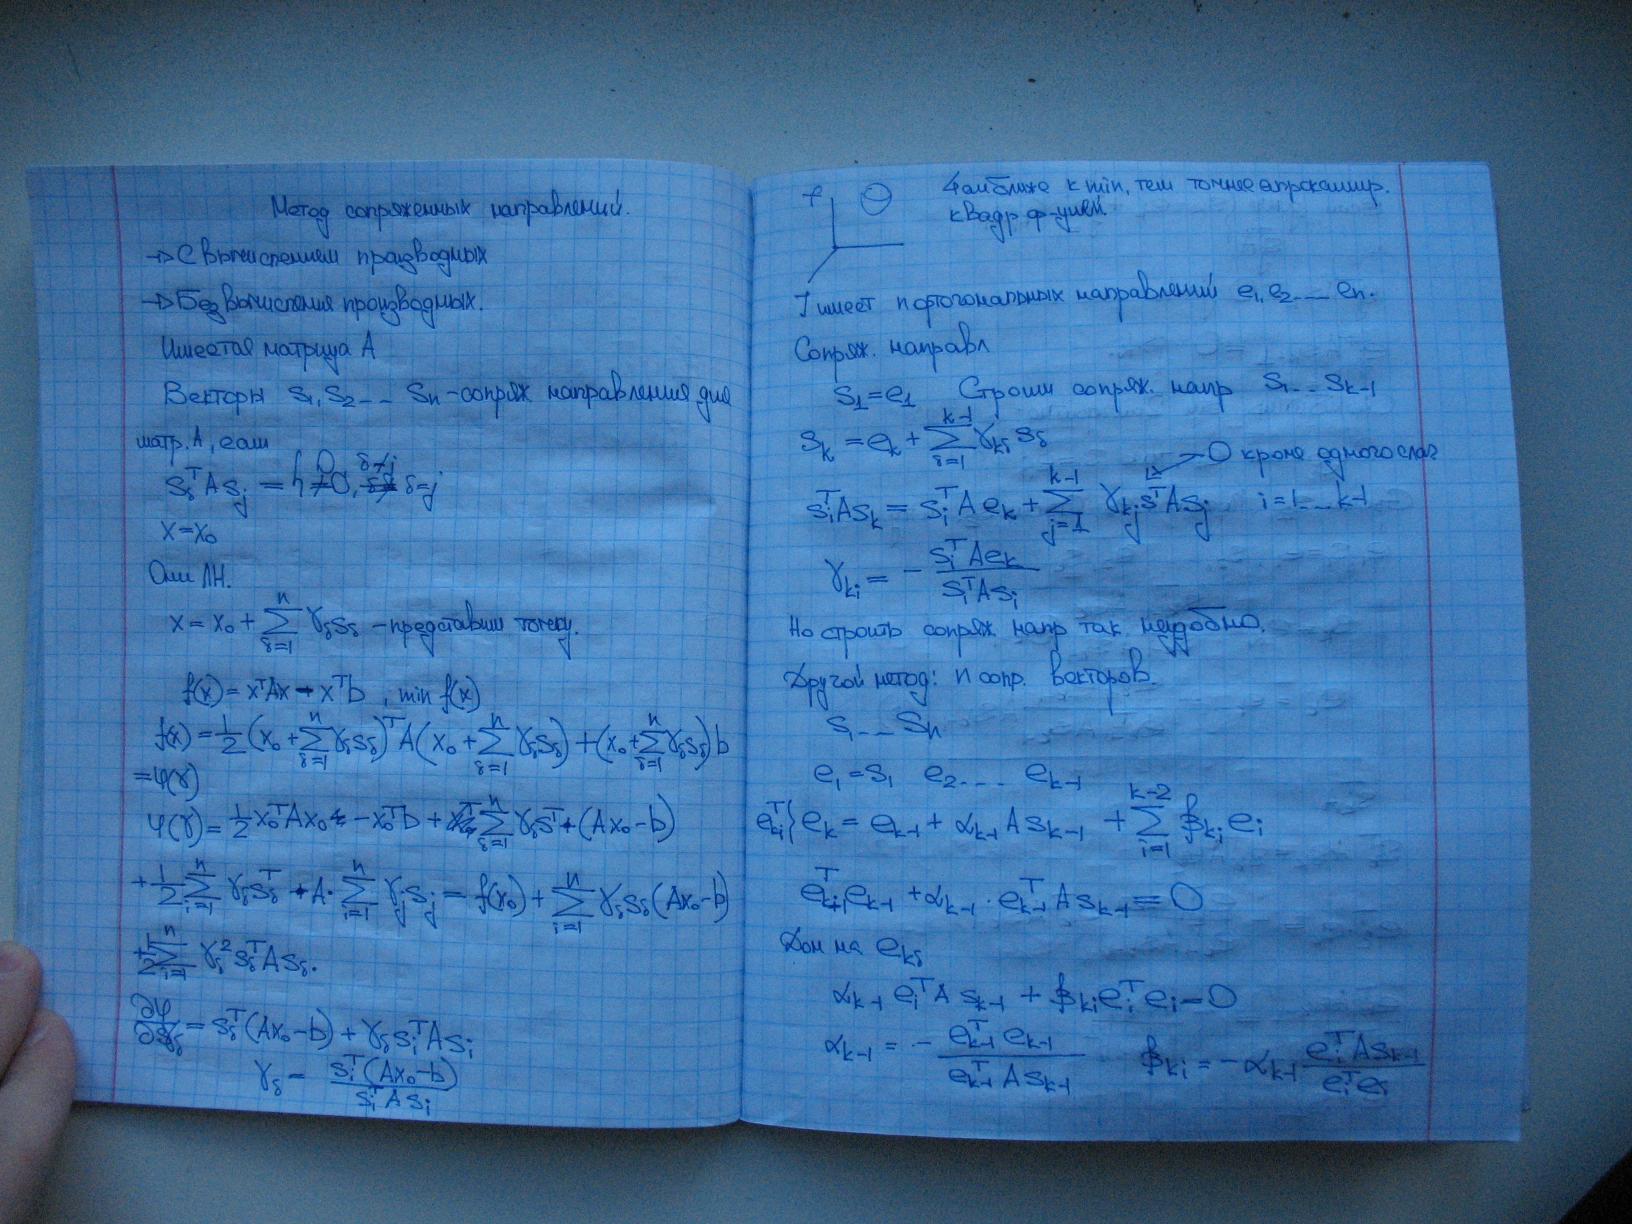 Метод сопряженных направлений.
→ С вычислением производных
→ Без вычисления производных.
Имеется матрица A
Векторы s₁, s₂ ... sₙ - сопряж направления для
матр. A, если
sᵢᵀAsⱼ = { 0, i≠j ≠0, i=j
x=x₀
Они ЛН.
x = x₀ + ∑ᵢ₌₁ⁿ γᵢsᵢ - представим точку.
f(x) = xᵀAx - xᵀb, min f(x)
f(x) = 1/2 (x₀ + ∑ᵢ₌₁ⁿ γᵢsᵢ)ᵀ A(x₀ + ∑ᵢ₌₁ⁿ γᵢsᵢ) + (x₀ + ∑ᵢ₌₁ⁿ γᵢsᵢ)b
= φ(γ)
φ(γ) = 1/2 x₀ᵀAx₀ - x₀ᵀb + ∑ᵢ₌₁ⁿ γᵢsᵀ (Ax₀ - b)
+ 1/2 ∑ᵢ₌₁ⁿ γᵢsᵢᵀ · A · ∑ᵢ₌₁ⁿ γⱼsⱼ = f(x₀) + ∑ᵢ₌₁ⁿ γᵢsᵢ(Ax₀ - b)
+ 1/2 ∑ᵢ₌₁ⁿ γᵢ² sᵢᵀAsᵢ.
∂φ/∂γᵢ = sᵢᵀ(Ax₀ - b) + γᵢsᵢᵀAsᵢ
γᵢ = sᵢᵀ(Ax₀ - b) / sᵢᵀAsᵢ
Чем ближе к min, тем точнее апроксимир.
квадр ф-цией.
f
] имеет n ортогональных направлений e₁, e₂ ... eₙ.
Сопряж. направл
s₁ = e₁ Строим сопряж. напр s₁ ... sₖ₋₁
sₖ = eₖ + ∑ᵢ₌₁ᵏ⁻¹ γₖᵢ sᵢ
→ 0 кроме одного слаг
sᵢᵀAsₖ = sᵢᵀAeₖ + ∑ⱼ₌₁ᵏ⁻¹ γₖⱼ sᵢᵀAsⱼ i=1...k-1
γₖᵢ = - sᵢᵀAeₖ / sᵢᵀAsᵢ
Но строить сопряж напр так неудобно.
Другой метод: n сопр. векторов.
s₁ ... sₙ
e₁ = s₁ e₂ .... eₖ₋₁
eₖ = eₖ₋₁ + αₖ₋₁Asₖ₋₁ + ∑ᵢ₌₁ᵏ⁻² βₖᵢ eᵢ
eₖ₋₁ᵀeₖ₋₁ + αₖ₋₁ · eₖ₋₁ᵀAsₖ₋₁ = 0
Дом на eₖᵢ
αₖ₋₁eᵢᵀAsₖ₋₁ + βₖᵢeᵢᵀeᵢ = 0
αₖ₋₁ = - eₖ₋₁ᵀeₖ₋₁ / eₖ₋₁ᵀAsₖ₋₁ βₖᵢ = - αₖ₋₁ eᵢᵀAsₖ₋₁ / eᵢᵀeᵢ